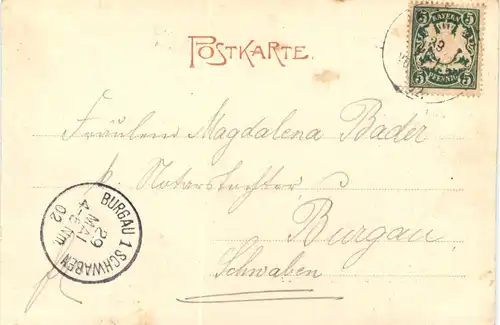 POSTKARTE.
BAYERN
5 5
PFENNIG
5 5
29
Fräulein Magdalena Bader
p. Notarstochter
Burgau
Schwaben
BURGAU 1 SCHWABEN
29
MAI
4-5 Nm.
02